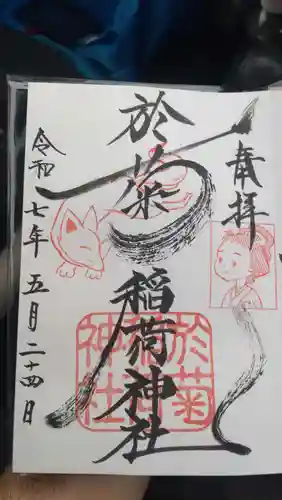 奉拝
於菊
稲荷神社
於菊
稲荷
神社
令和七年五月二十四日